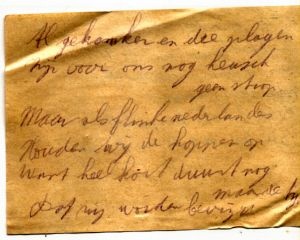 Al gekanker en die plagen
zijn voor ons nog heusch
geen strop
Maar als flinke nederlanders
Houden wij de koppen op
Want heel kort duurt nog
worden bevrijd